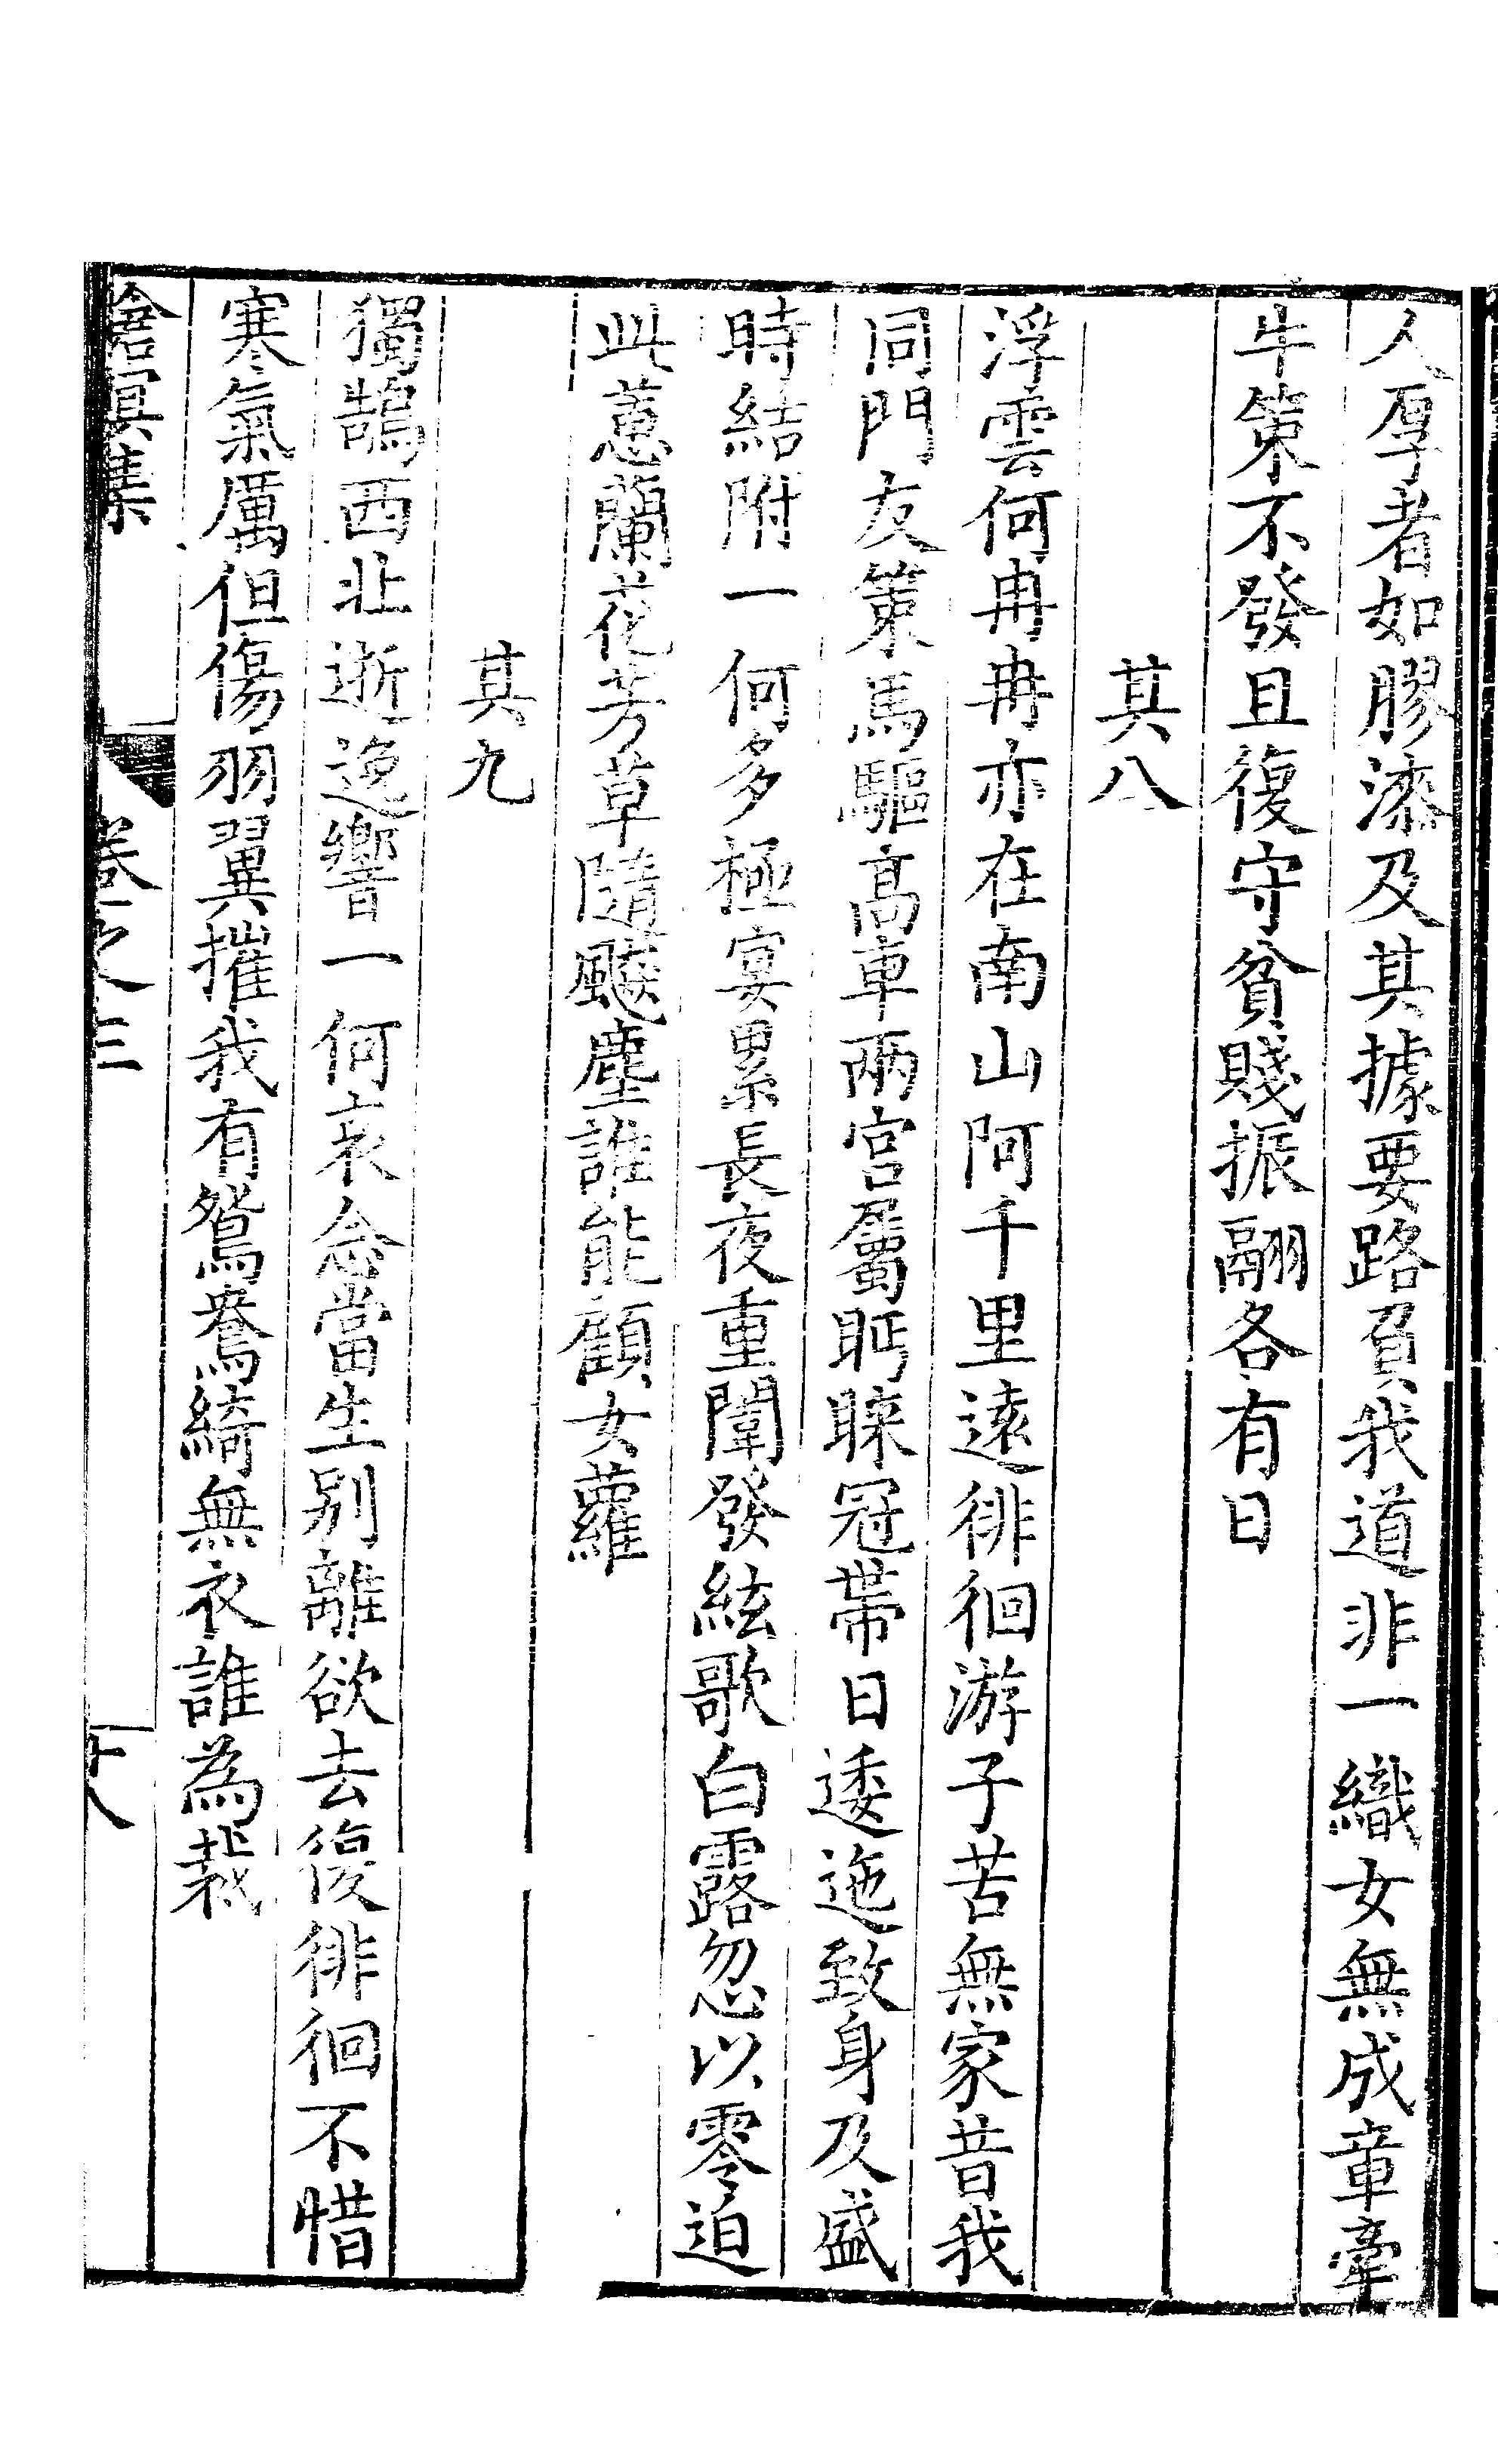 人厚者如膠漆及其據要路負我道非一織女無成章牽
牛策不發且復守貧賤振翮各有日
其八
浮雲何冉冉亦在南山阿千里遠徘徊游子苦無家昔我
同門友策馬驅高車兩宮屬眄睞冠帶日逶迤致身及盛
時結附一何多極宴累長夜重闈發絃歌白露忽以零迫
此蕙蘭花芳草隨飈塵誰能顧女蘿
其九
獨鵠西北逝逸響一何哀念當生別離欲去復徘徊不惜
寒氣厲但傷羽翼摧我有鴛鴦綺無衣誰為裁
卷之三
十八